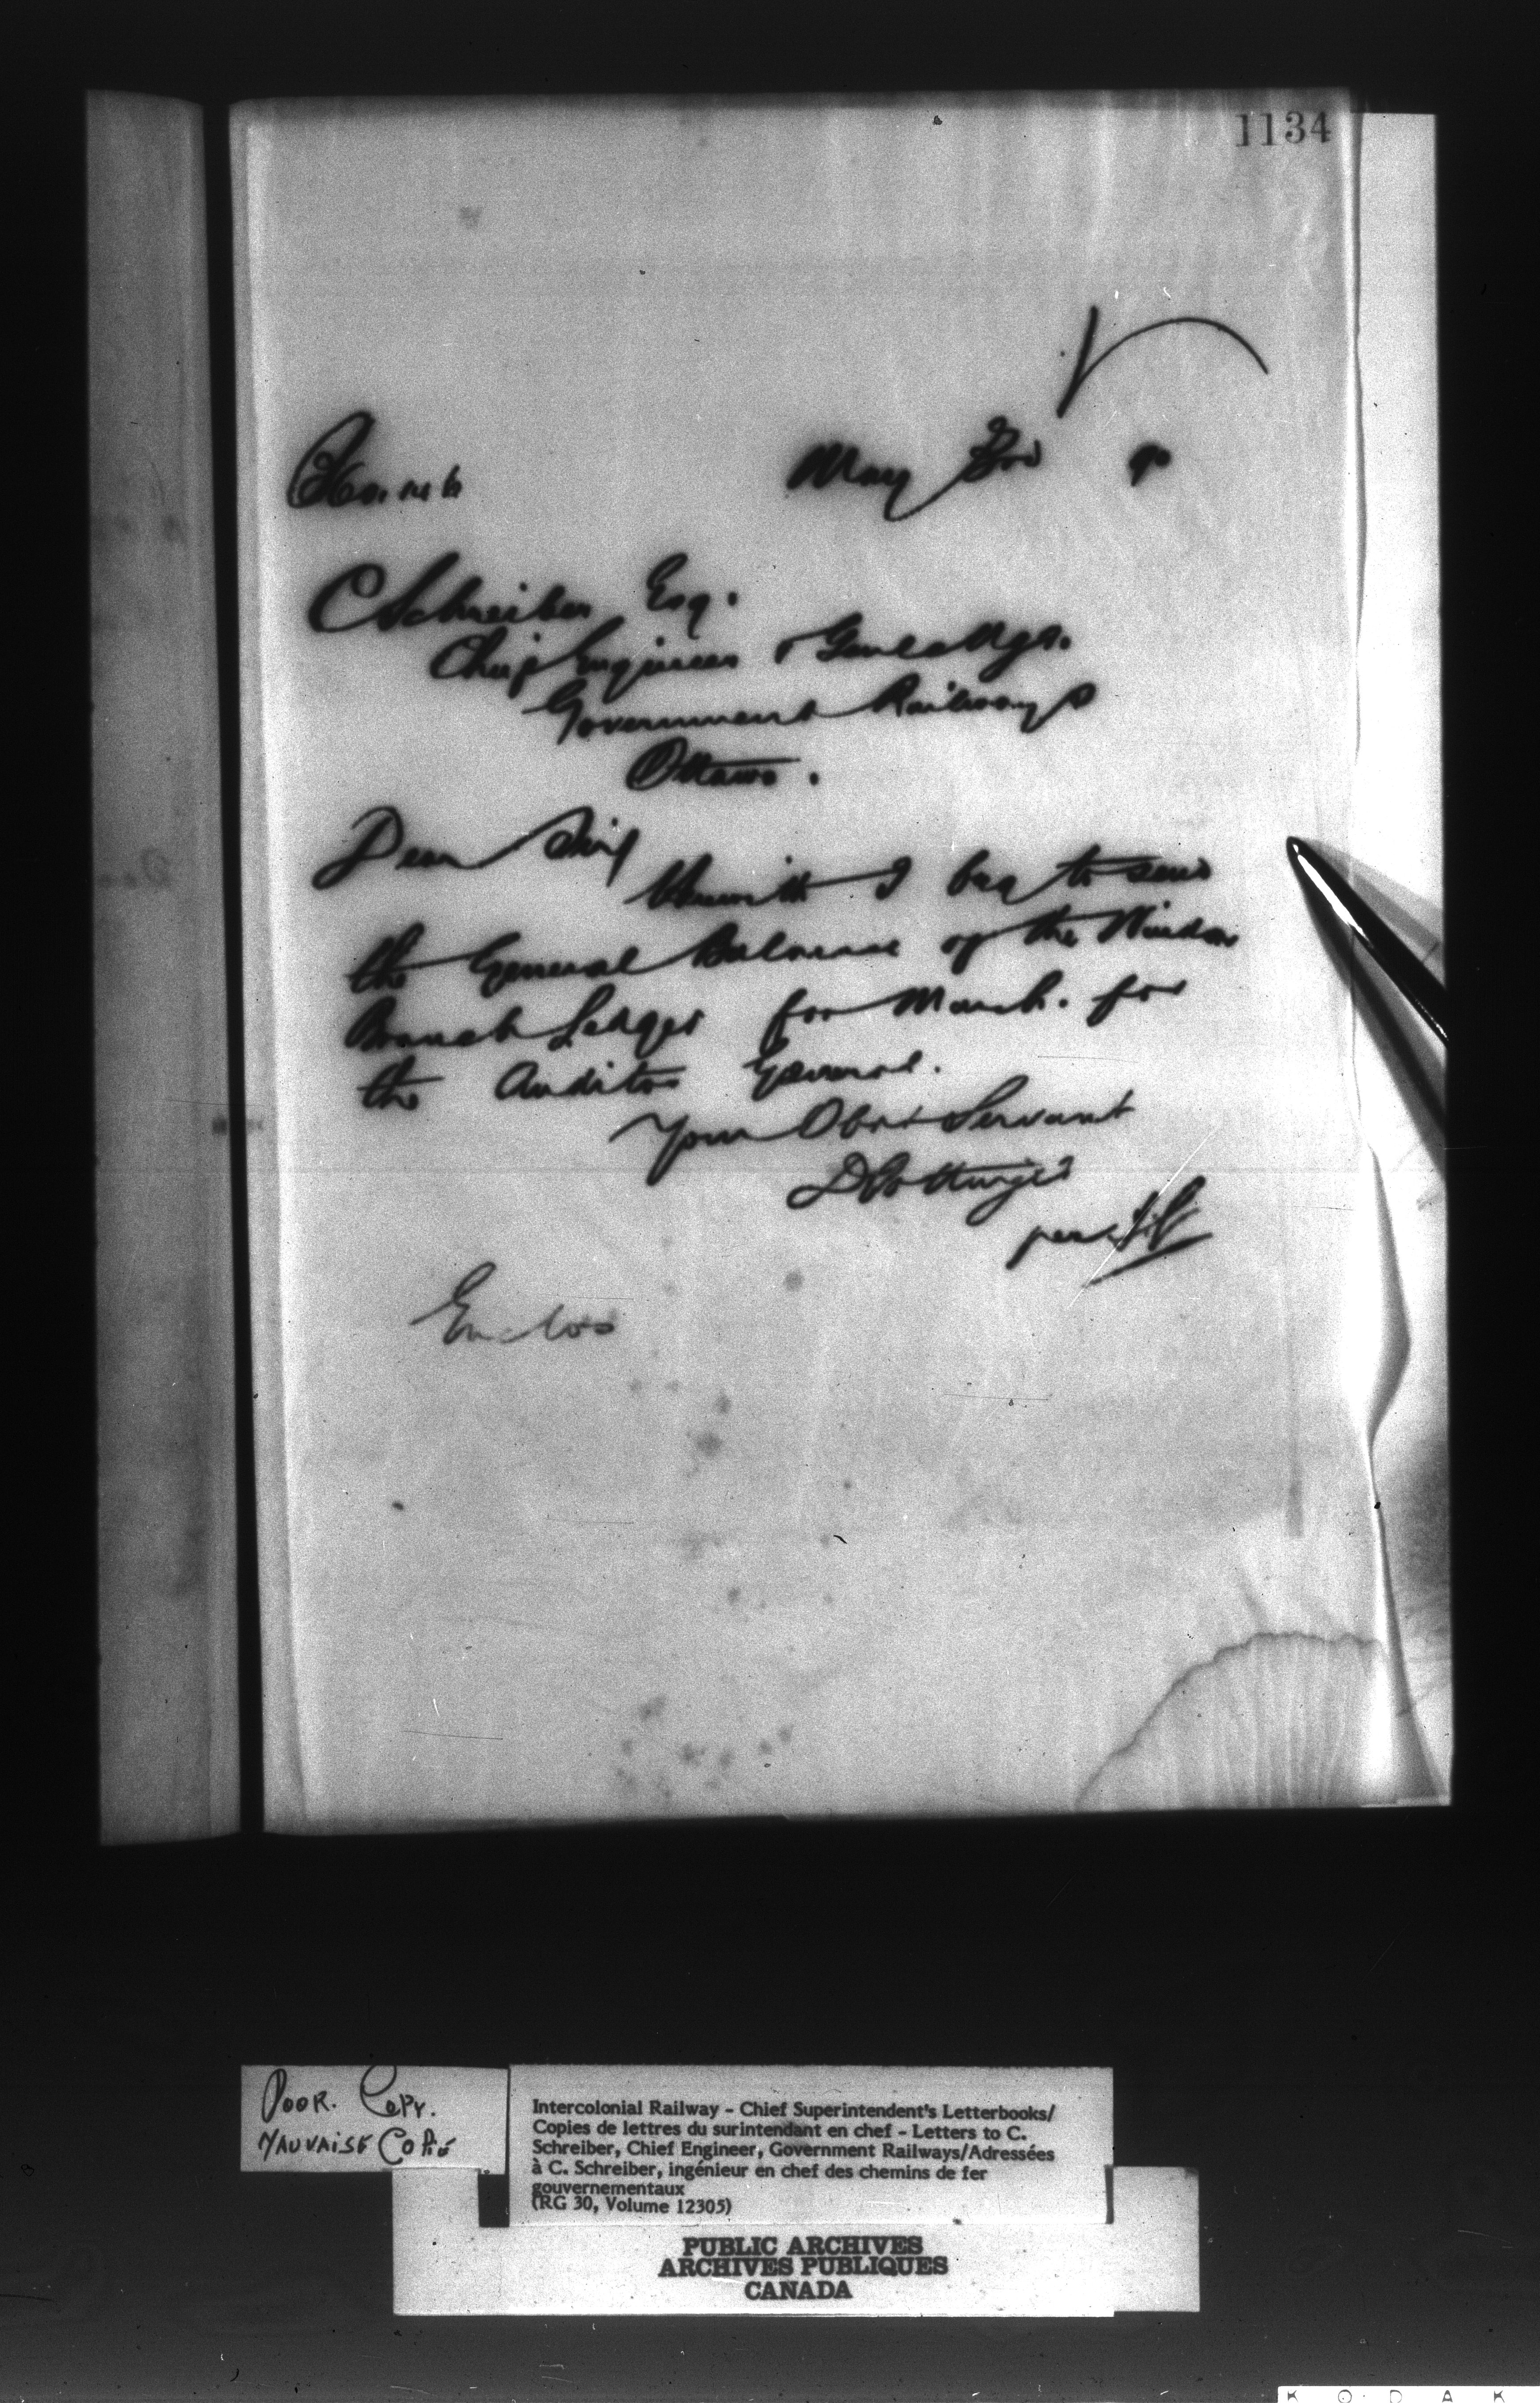 1134
May 3rd 90
C Schreiber Esq.
Chief Engineer & Genl Mgr.
Government Railways
Ottawa.
Dear Sir
Herewith I beg to send
the General Balance of the Windsor
Branch Ledger for March. for
the Auditor General.
Your Obdt Servant
D Pottinger
per
Enclos
POOR. COPY.
MAUVAISE COPIE
Intercolonial Railway - Chief Superintendent's Letterbooks/
Copies de lettres du surintendant en chef - Letters to C.
Schreiber, Chief Engineer, Government Railways/Adressées
à C. Schreiber, ingénieur en chef des chemins de fer
gouvernementaux
(RG 30, Volume 12305)
PUBLIC ARCHIVES
ARCHIVES PUBLIQUES
CANADA
K O D A K